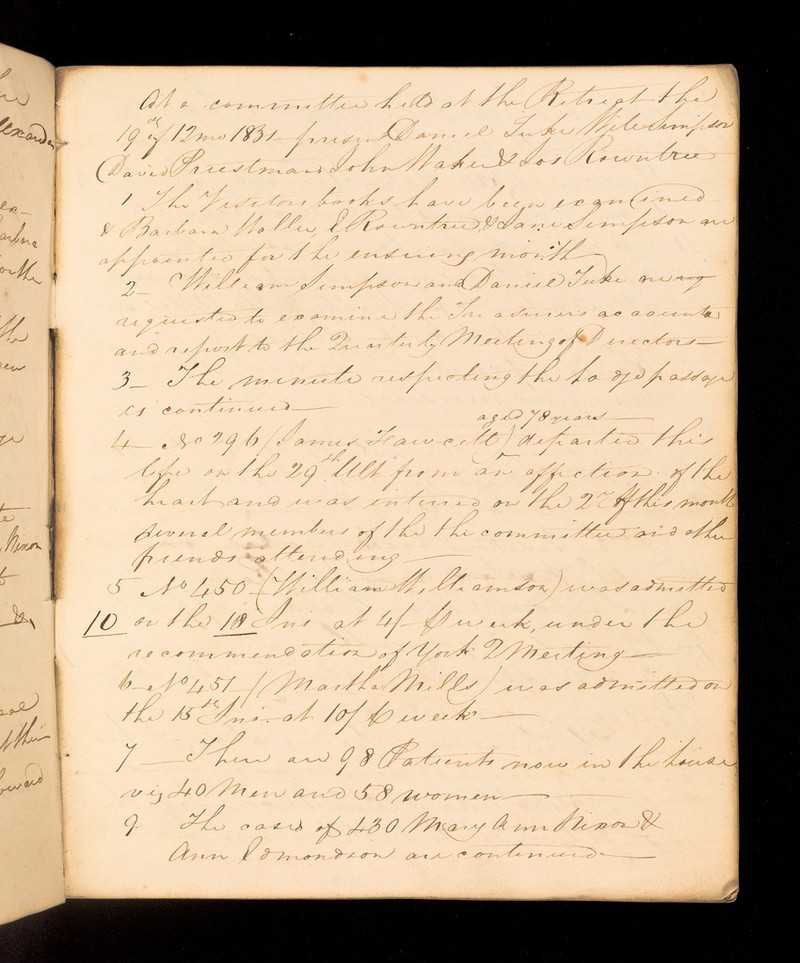 At a committee held at the Retreat the
19th of 12 mo 1831 present Daniel Tuke Wilm Simpson
David Priestman John Waker & Jos Rowntree
1 The Visitors books have been examined
& Barbara Waller, E Rowntree, & Jane Simpson are
appointed for the ensuing month
2 — William Simpson and Daniel Tuke are
requested to examine the Treasurers accounts
and report to the Quarterly Meeting of Directors —
3 — The minute respecting the lodge passage
is continued —
aged 78 years —
4 — No 296 (James Fawcett) departed this
life on the 29th Ult from an affection of the
heart and was interred on the 2d of this month
several members of the the committee and other
friends attending —
5 No 450 — (William Williamson) was admitted
10 on the 10 Ins at 4/- ⅌ week, under the
recommendation of York 2 Meeting —
6 — No 451 — (Martha Mills) was admitted on
the 15th Ins. at 10/ ⅌ week —
7 — There are 98 Patients now in the house
viz 40 Men and 58 women —
9 The cases of 430 Mary Ann Nixon &
Ann Edmondson are continued —